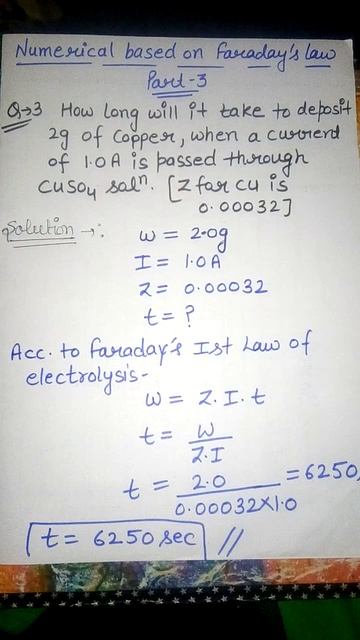 Numerical based on Faraday's law
Part-3
Q→3 How long will it take to deposit
2g of Copper, when a current
of 1.0 A is passed through
CuSO4 solⁿ. [Z for Cu is
0.00032]
Solution →:
W = 2.0g
I = 1.0 A
Z = 0.00032
t = ?
Acc. to Faraday's Ist Law of
electrolysis-
W = Z. I. t
t = W
Z.I
t = 2.0 = 6250
0.00032×1.0
t = 6250 sec //